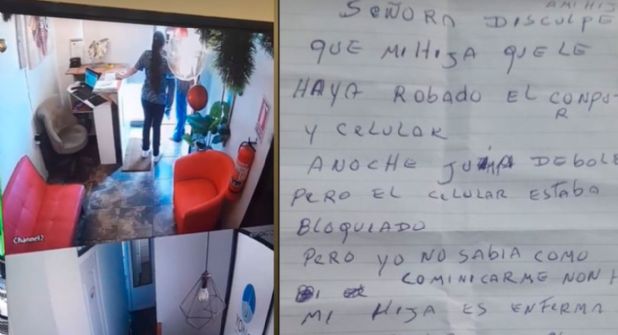 Channel2
AMI HIJ
SEÑORA DISCULPE
QUE MI HIJA QUE LE
HAYA ROBADO EL COMPU-
R
Y CELULAR
ANOCHE DEBOLE
PERO EL CELULAR ESTABA
BLOQUIADO
PERO YO NO SABIA COMO
COMINICARME NON
MI HIJA ES ENFERMA